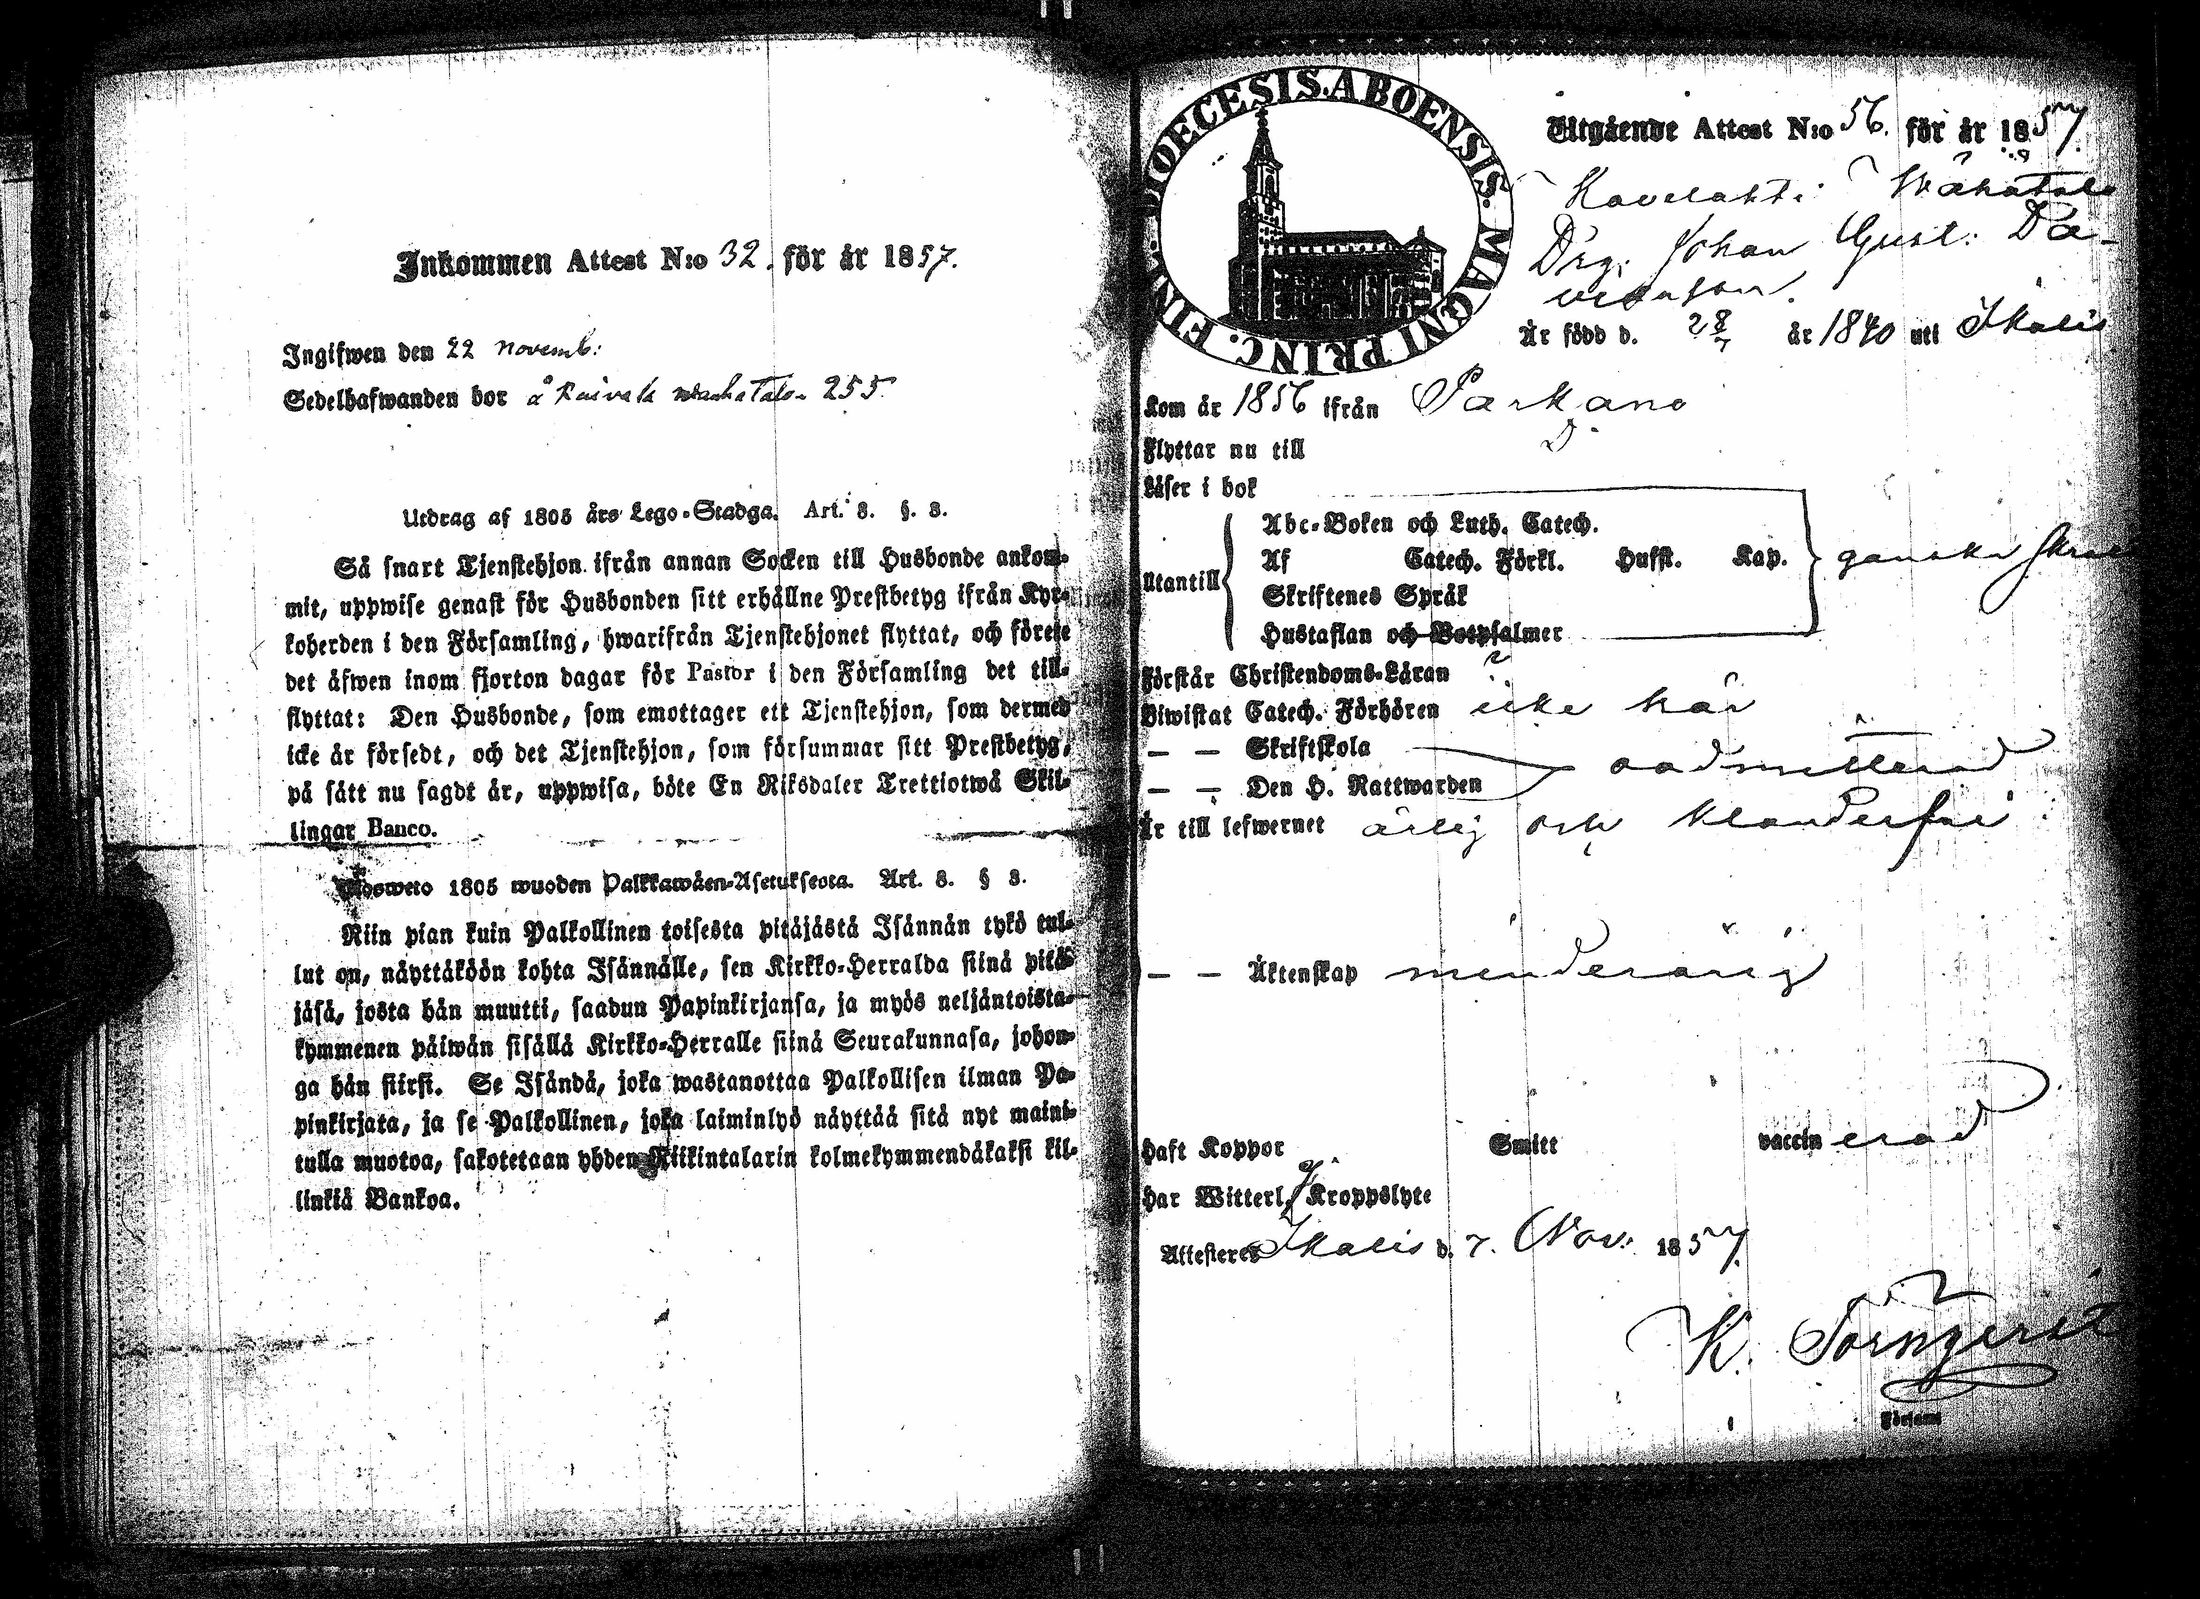 Inkommen Attest N:o 32. för år 1857.
Ingifwen den 22 novemb:
Sedelhafwanden bor å 255.
Utdrag af 1805 års Lego-Stadga. Art. 8. §. 8.
Så snart Tjenstehjon ifrån annan Socken till Husbonde ankom-
mit, uppwise genast för Husbonden sitt erhållne Prestbetyg ifrån Kyr-
koherden i den Församling, hwarifrån Tjenstehjonet flyttat, och förete
det äfwen inom fjorton dagar för Pastor i den Församling det till-
flyttat: Den Husbonde, som emottager ett Tjenstehjon, som dermed
icke är försedt, och det Tjenstehjon, som försummar sitt Prestbetyg,
på sätt nu sagdt är, uppwisa, böte En Riksdaler Trettiotwå Skil-
lingar Banco.
1805 wuoden Palkkawäen-Asetuksesta. Art. 8. § 8.
Niin pian kuin Palkollinen toisesta pitäjästä Isännän tykö tul-
lut on, näyttäköön kohta Isännälle, sen Kirkko-Herralda siinä pitä-
jäsä, josta hän muutti, saadun Papinkirjansa, ja myös neljäntoista-
kymmenen päiwän sisällä Kirkko-Herralle siinä Seurakunnasa, johon-
ga hän siirsi. Se Isändä, joka wastanottaa Palkollisen ilman Pa-
pinkirjata, ja se Palkollinen, joka laiminlyö näyttää sitä nyt maini-
tulla muotoa, sakotetaan yhden Riikintalarin kolmekymmendäkaksi kil-
linkiä Bankoa.
DIOECESIS. ABOENSIS. MAGNI PRINC. FINL.
Utgående Attest N:o 56. för år 1857.
Kovelahti Wähätalo
Drg: Johan Gust: Da-
vidsson.
Är född d. 28/7 år 1840 uti Ikalis
Kom år 1856 ifrån Parkano
Flyttar nu till
Läser i bok
Utantill
Abc-Boken och Luth. Catech.
Af Catech. Förkl. Hufst. Kap. ganska
Skriftenes Språk
Hustaflan och Botpsalmer
Förstår Christendoms-Läran
Biwistat Catech. Förhören icke här
— — Skriftskola
oadmitterad
— — Den H. Nattwarden
Är till lefwernet ärlig och klanderfri
— — Äktenskap minderårig
Haft Koppor Smitt vaccinerad
Har Witterl. Kroppslyte
Attesteres Ikalis d. 7. Nov: 1857.
K. Törnqvist